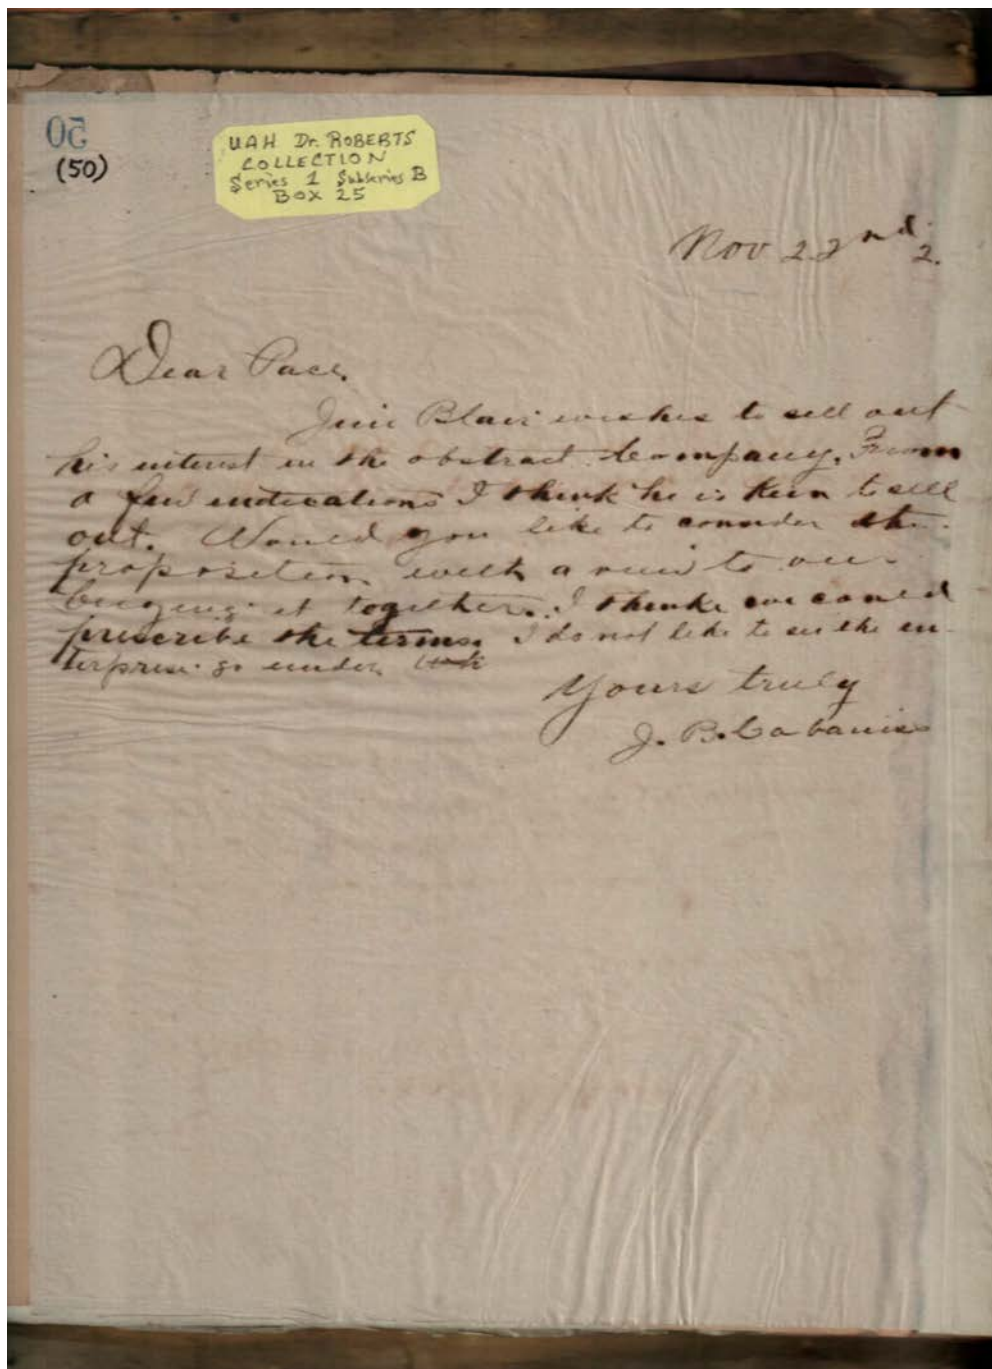 50
(50)
UAH Dr. ROBERTS
COLLECTION
Series 1 Subseries B
BOX 25
Nov 22nd 2.
Dear Pace,
Jim Blair wishes to sell out
his interest in the abstract Company. From
a few indications I think he is keen to sell
out. Would you like to consider the
proposition with a view to our
buying it together. I think we could
prescribe the terms. I do not like to see the en-
terprise go under
Yours truly
J. B. Cabaniss